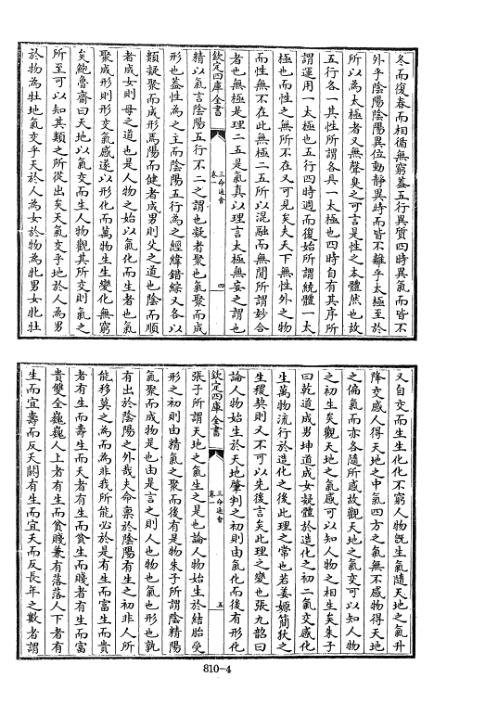 冬而復春而相循無窮蓋五行異質四時異氣而皆不
外乎陰陽陰陽異位動靜異時而皆不離乎太極至於
所以為太極者又無聲臭之可言是性之本體然也故
五行各一其性所謂各具一太極也四時自有其序所
謂運用一太極也五行四時週而復始所謂統體一太
極也而性之無所不在又可見矣夫天下無性外之物
而性無不在此無極二五所以混融而無間所謂妙合
者也無極是理二五是氣真以理言太極無妄之謂也
欽定四庫全書
三命通會
卷一
四
精以氣言陰陽五行不二之謂也凝者聚也氣聚而成
形也蓋性為之主而陰陽五行為之經緯錯綜又各以
類凝聚而成形焉陽而健者成男則父之道也陰而順
者成女則母之道也是人物之始以氣化而生者也氣
聚成形則形交氣感遂以形化而萬物生生變化無窮
矣鮑魯齋曰天地以氣交而生人物觀其所交則氣之
所至可以知其類之所從出矣天氣交乎地於人為男
於物為牡地氣交乎天於人為女於物為牝男女牝牡
又自交而生生化化不窮人物旣生氣隨天地之氣升
降交感人得天地之中氣四方之氣無不感物得天地
之偏氣而亦各隨所感故觀天地之氣交可以知人物
之初生矣觀天地之氣感可以知人物之相生矣朱子
曰乾道成男坤道成女凝體於造化之初二氣交感化
生萬物流行於造化之後此理之常也若姜嫄簡狄之
生稷契則又不可以先後言矣此理之變也張九韶曰
論人物始生於天地肇判之初則由氣化而後有形化
欽定四庫全書
三命通會
卷一
五
張子所謂天地之氣生之是也論人物始生於結胎受
形之初則由精氣之聚而後有是物朱子所謂陰精陽
氣聚而成物是也由是言之則人也物也氣也形也孰
有出於陰陽之外哉夫命稟於陰陽有生之初非人所
能移莫之為而為非我所能必於是有生而富生而貴
者有生而壽生而夭者有生而貧賤生而賤者有生而富
貴雙全巍巍人上者有生而貧賤兼有落落人下者有
生而宜壽而反夭闕有生而宜夭而反長年之數者謂